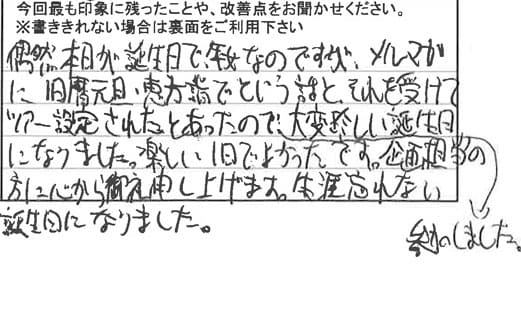 今回最も印象に残ったことや、改善点をお聞かせください。
※書ききれない場合は裏面をご利用下さい
偶然本日が誕生日で、年女なのですが、メルマガ
に旧暦元旦、恵方詣でという話と、それを受けて
ツアー設定されたとあったので、大変珍しい誕生日
になりました。楽しい1日でよかったです。企画担当の
方に心から御礼申し上げます。生涯忘れない
誕生日になりました。
しました。